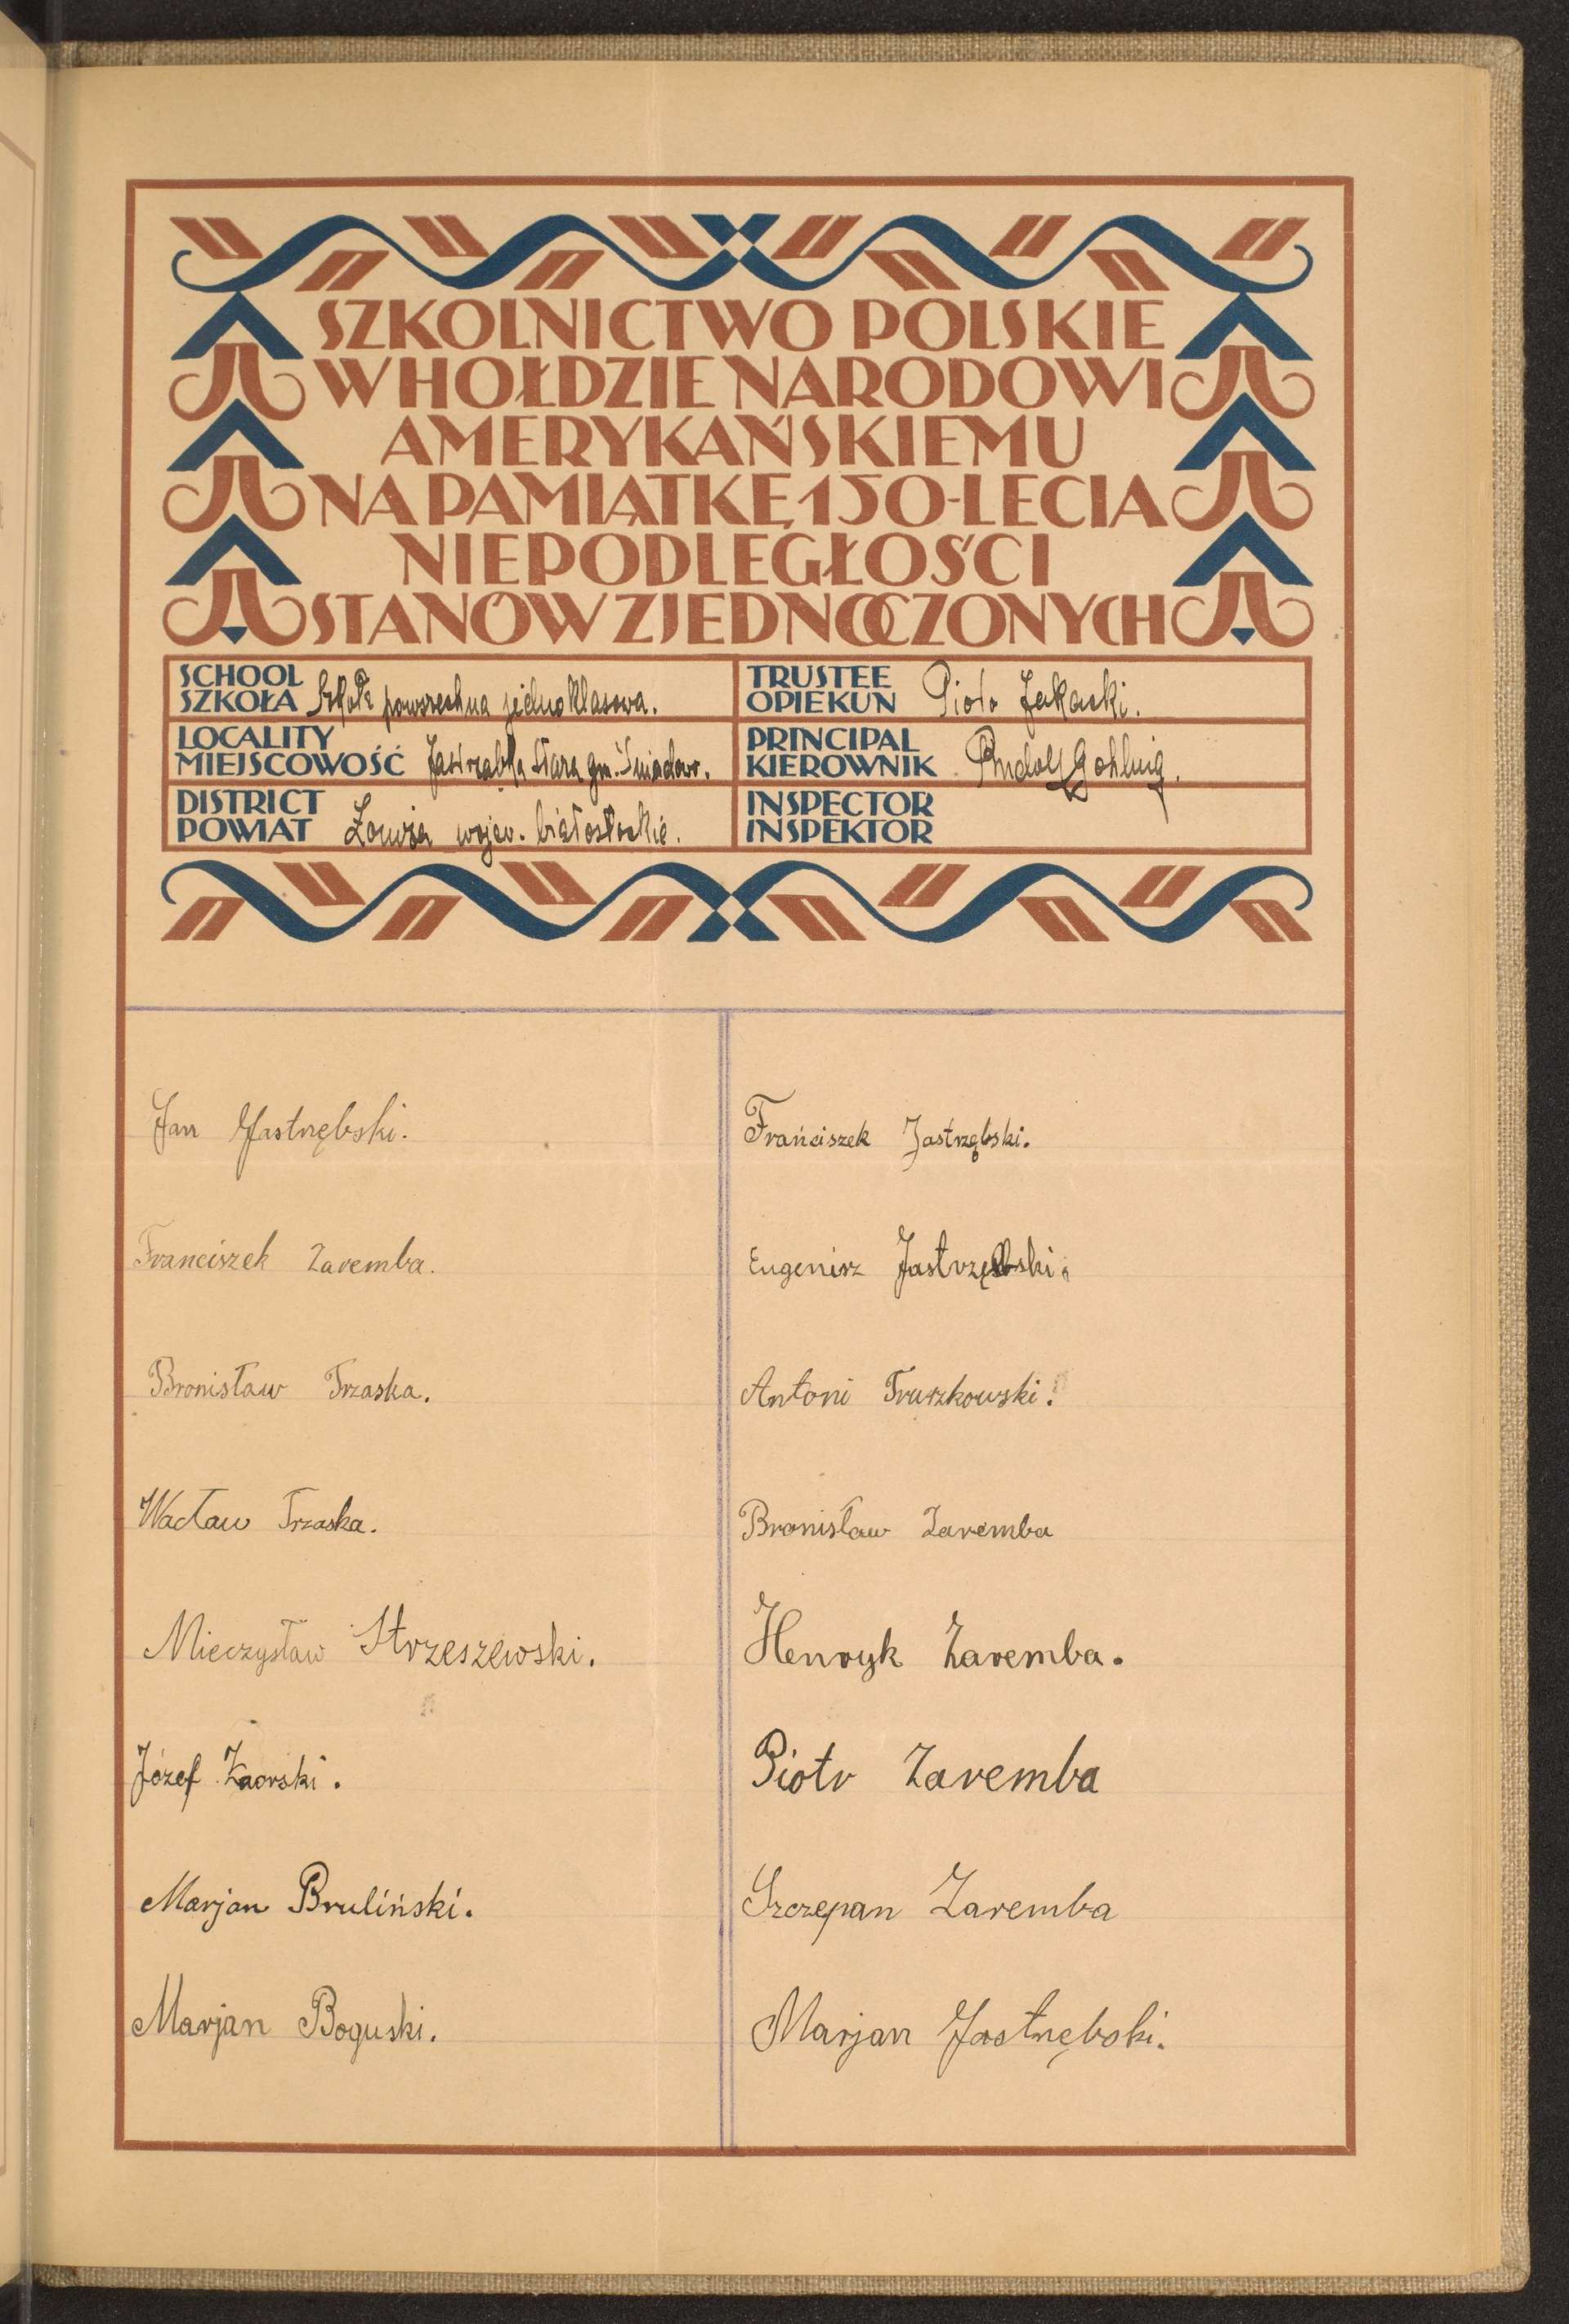 SZKOLNICTWO POLSKIE
W HOŁDZIE NARODOWI
AMERYKAŃSKIEMU
NA PAMIĄTKĘ 150-LECIA
NIEPODLEGŁOŚCI
STANÓW ZJEDNOCZONYCH
SCHOOL
SZKOŁA Szkoła powszechna jednoklasowa.
LOCALITY
MIEJSCOWOŚĆ Jastrząbka Stara gm. Śniadowo.
DISTRICT
POWIAT Łomża wojew. białostockie.
TRUSTEE
OPIEKUN Piotr Żakacki.
PRINCIPAL
KIEROWNIK Rudolf Gohling.
INSPECTOR
INSPEKTOR
Jan Jastrzębski.
Franciszek Zaremba.
Bronisław Trzaska.
Wacław Trzaska.
Mieczysław Strzeszewski.
Józef Zaorski.
Marjan Bruliński.
Marjan Boguski.
Frańciszek Jastrzębski.
Eugenisz Jastrzębski.
Antoni Truszkowski.
Bronisław Zaremba
Henryk Zaremba.
Piotr Zaremba
Szczepan Zaremba
Marjan Jastrzębski.